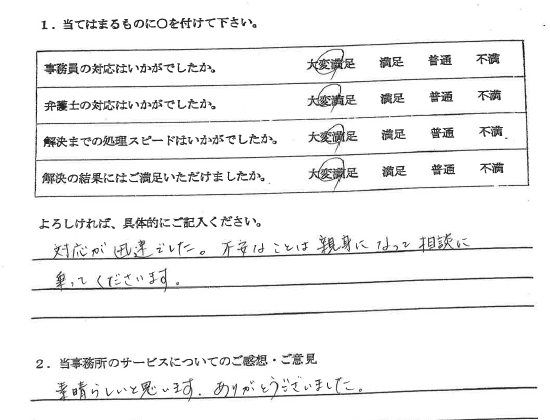 1．当てはまるものに○を付けて下さい。
事務員の対応はいかがでしたか。 大変満足 満足 普通 不満
弁護士の対応はいかがでしたか。 大変満足 満足 普通 不満
解決までの処理スピードはいかがでしたか。 大変満足 満足 普通 不満
解決の結果にはご満足いただけましたか。 大変満足 満足 普通 不満
よろしければ、具体的にご記入ください。
対応が迅速でした。不安なことは親身になって相談に
乗ってくださいます。
2．当事務所のサービスについてのご感想・ご意見
素晴らしいと思います。ありがとうございました。